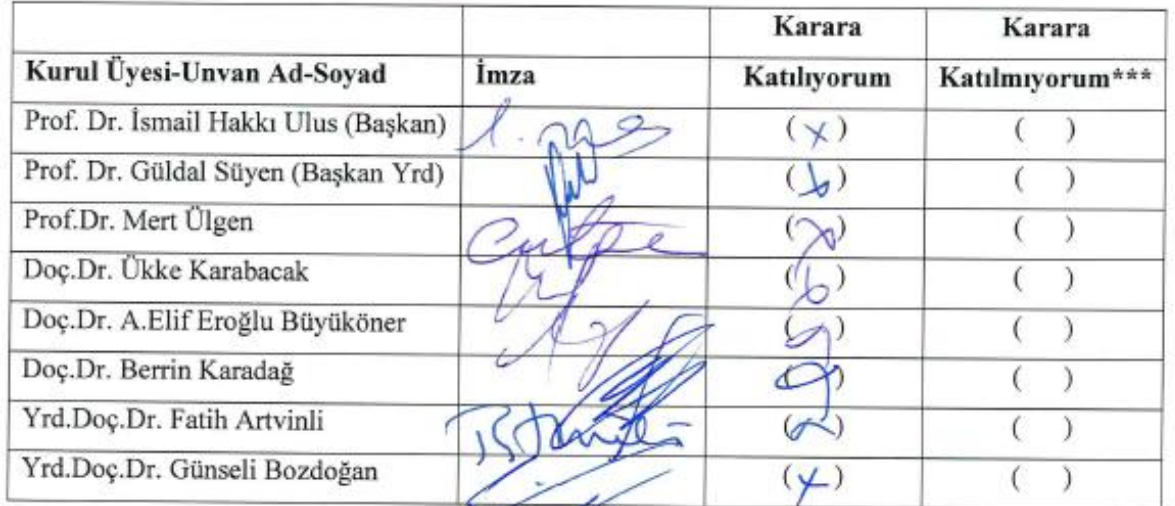 Karara Karara
Kurul Üyesi-Unvan Ad-Soyad İmza Katılıyorum Katılmıyorum***
Prof. Dr. İsmail Hakkı Ulus (Başkan) (x) ( )
Prof. Dr. Güldal Süyen (Başkan Yrd) (x) ( )
Prof.Dr. Mert Ülgen (x) ( )
Doç.Dr. Ükke Karabacak (x) ( )
Doç.Dr. A.Elif Eroğlu Büyüköner (x) ( )
Doç.Dr. Berrin Karadağ (x) ( )
Yrd.Doç.Dr. Fatih Artvinli (x) ( )
Yrd.Doç.Dr. Günseli Bozdoğan (x) ( )